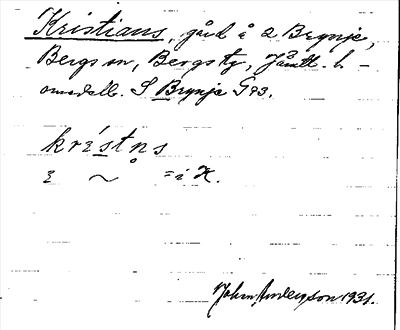 Kristians, gård å 2 Brynje,
Bergs sn, Bergs tg, Jämtl. l. -
områdesbet. S Brynje G93.
krɛ́stn̥s
ɛ ~ = i K.
John Anderson 1931.